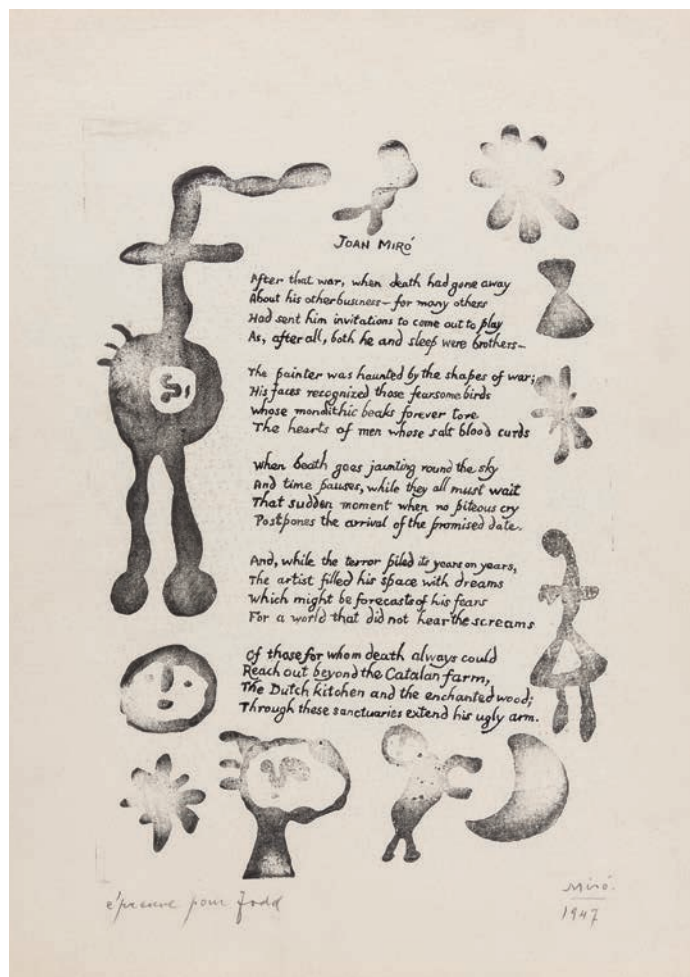 JOAN MIRÓ
After that war, when death had gone away
About his other business — for many others
Had sent him invitations to come out to play
As, after all, both he and sleep were brothers —
The painter was haunted by the shapes of war;
His faces recognized those fearsome birds
Whose monolithic beaks forever tore
The hearts of men whose salt blood curds
When death goes jaunting round the sky
And time pauses, while they all must wait
That sudden moment when no piteous cry
Postpones the arrival of the promised date.
And, while the terror piled its years on years,
The artist filled his space with dreams
Which might be forecasts of his fears
For a world that did not hear the screams
Of those for whom death always could
Reach out beyond the Catalan farm,
The Dutch kitchen and the enchanted wood;
Through these sanctuaries extend his ugly arm.
épreuve pour Todd
Miró.
1947